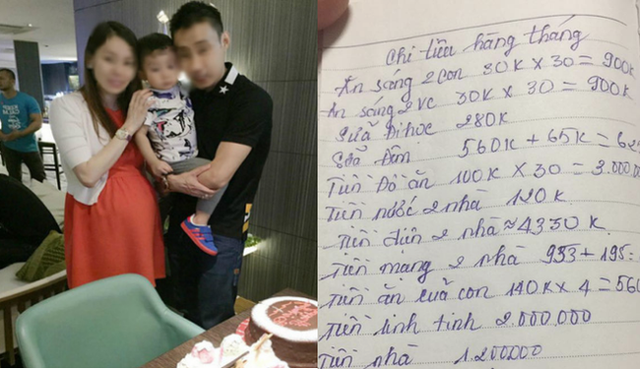 Chi tiêu hàng tháng
Ăn sáng 2 con 30K x 30 = 900K
Ăn sáng 2 VC 30K x 30 = 900K
Sữa đi học 280K
560K + 65K = 62
Tiền Đồ ăn 100K x 30 = 3.000.00
Tiền nước 2 nhà 120K
Tiền điện 2 nhà ≈ 4330K
Tiền mạng 2 nhà 933 + 195
Tiền ăn của con 140K x 4 = 560
Tiền linh tinh 2.000.000
Tiền nhà 1.200.000